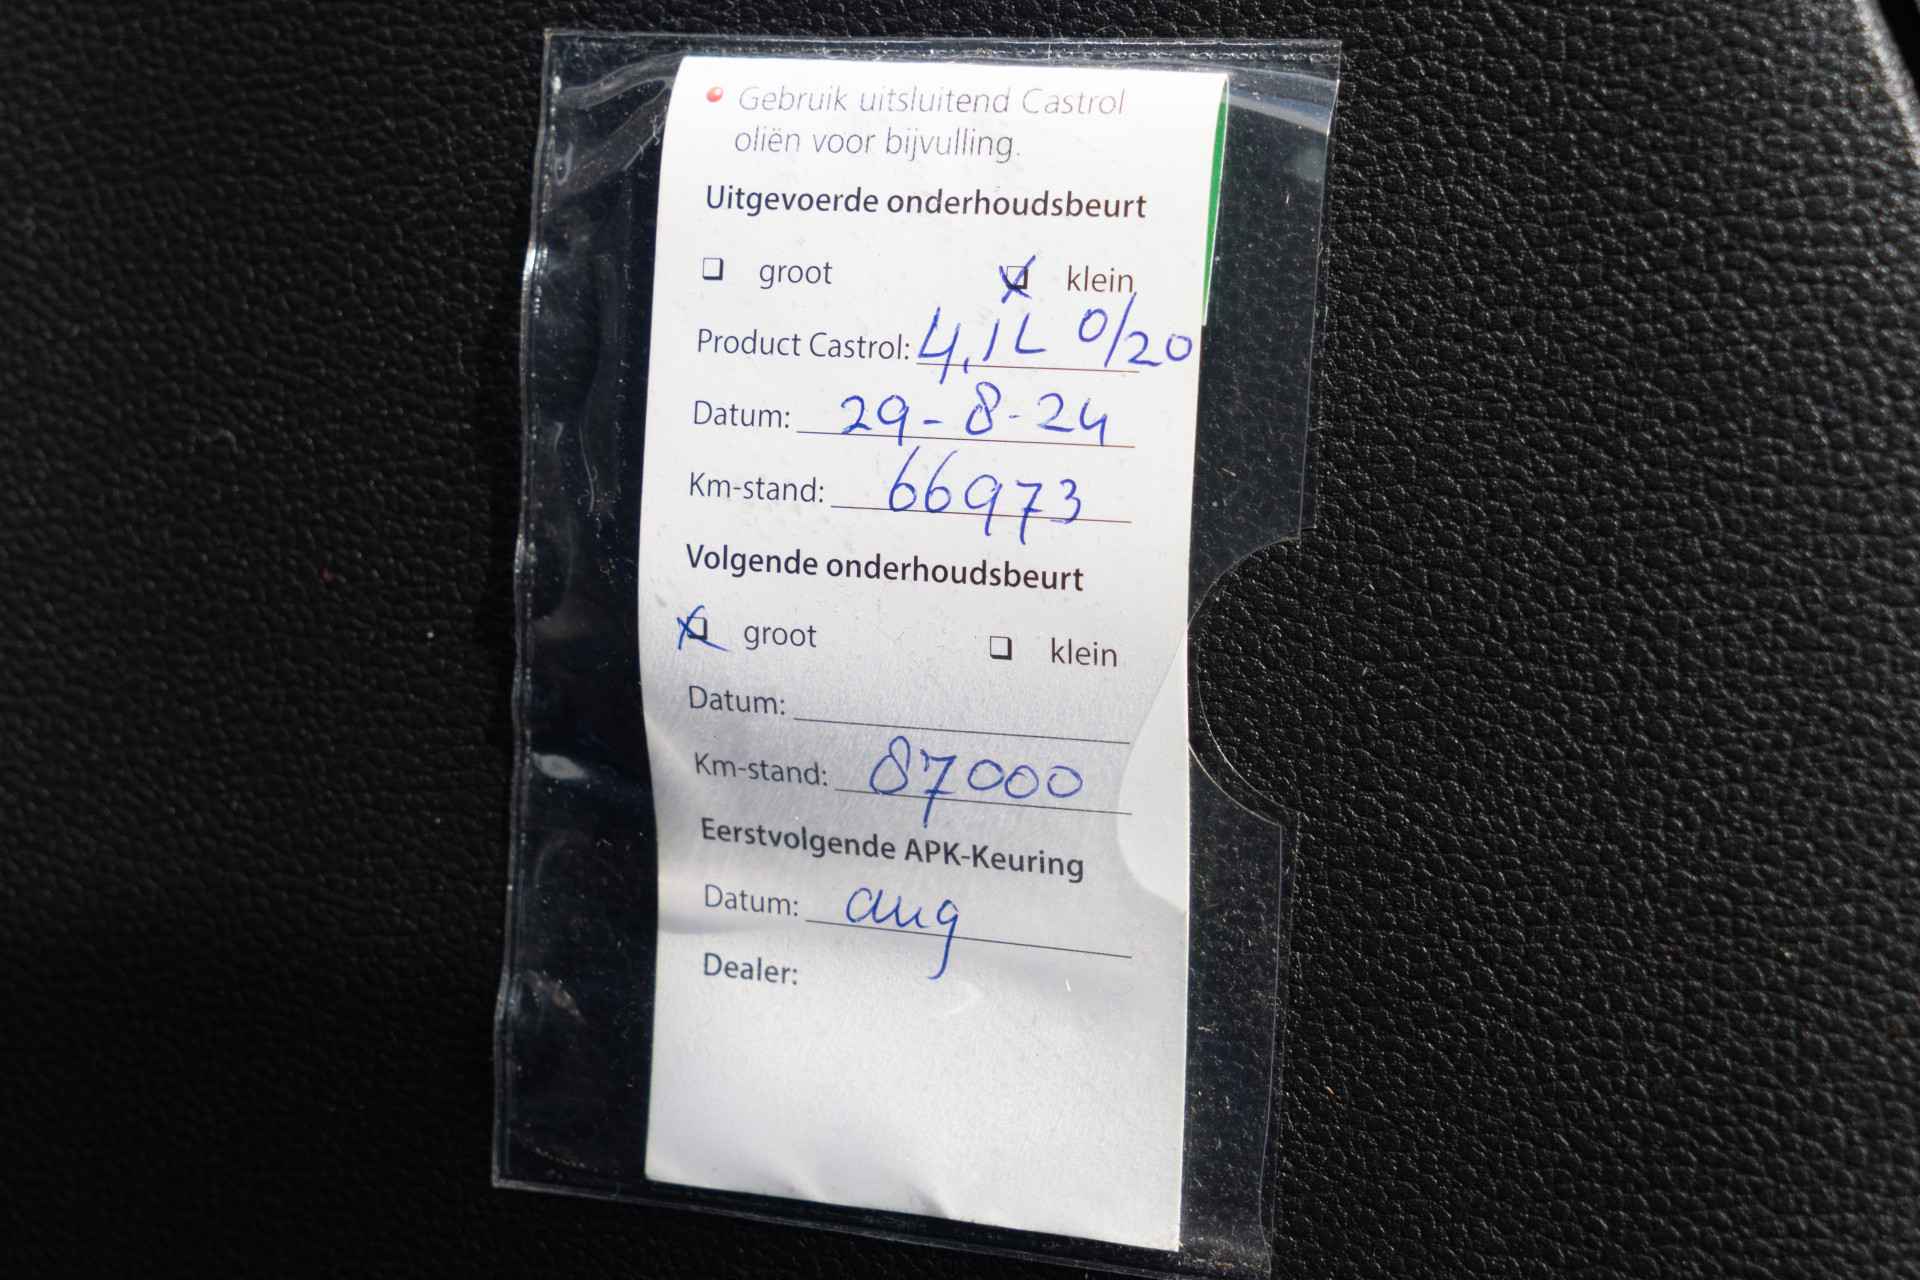 Gebruik uitsluitend Castrol
oliën voor bijvulling.
Uitgevoerde onderhoudsbeurt
groot klein
Product Castrol: 4,1L 0/20
Datum: 29-8-24
Km-stand: 66973
Volgende onderhoudsbeurt
groot klein
Datum:
Km-stand: 87000
Eerstvolgende APK-Keuring
Datum: aug
Dealer: